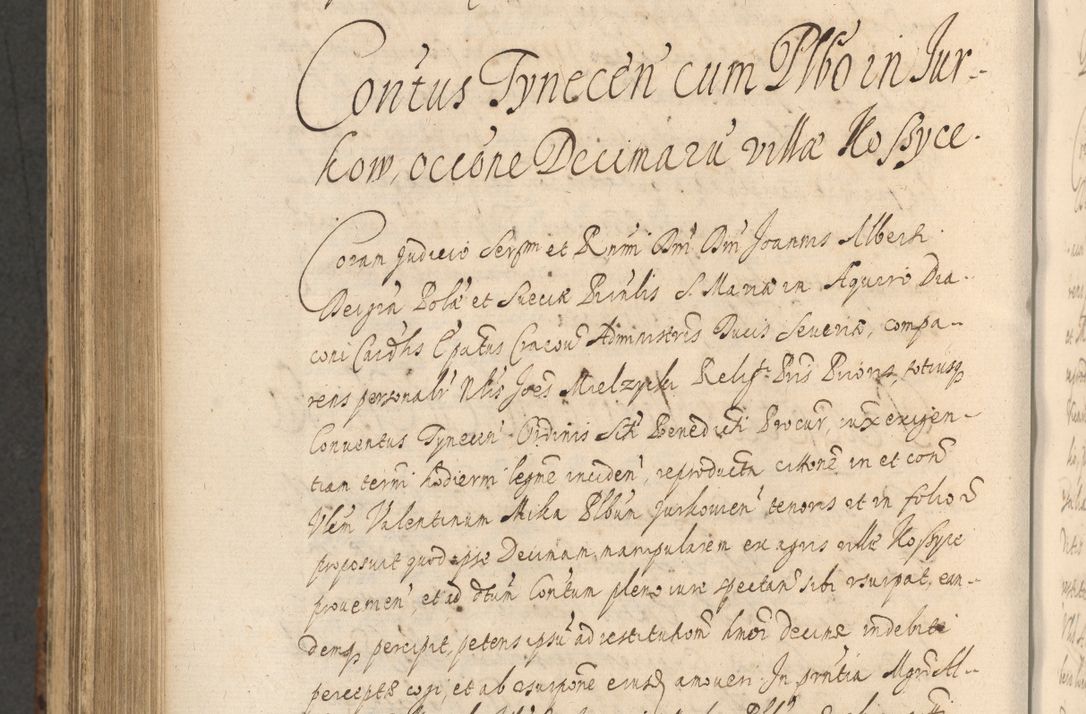 Contus Tynecen cum Plbo in Jur-
kow, occone Decimaru villæ Koszyce.
Coram Judicio Sersmi et Rnmi Dni Dni Joannis Alberti
Dei gra Polæ et Sueciæ Prinlis S. Mariæ in Aquiro Dia-
coni Cardlis Epatus Cracou Administris Ducis Seueriæ, compa-
rens personalr Nlis Joes Mielzynski Religi Pris Prioris, totiusq
Conuentus Tynecen Ordinis Scti Benedicti Procur, iuxt exigen-
tiam termi hodierni legme inciden, reproducta cittone in et con
Vlem Valentinum Mika Plbum Jurkouien tenoris et in folio
proposuit quod ipse Decimam manipularem ex agris villæ Koszyce
prouenien, et ad dtum Contum pleno iure spectan sibi vsurpat, ean-
demq percipit, petens ipsu ad restitutionem hmoi Decimæ indebite
perceptæ cogi, et ab vsurpone eiusd amoueri. In prntia Mgri Al-